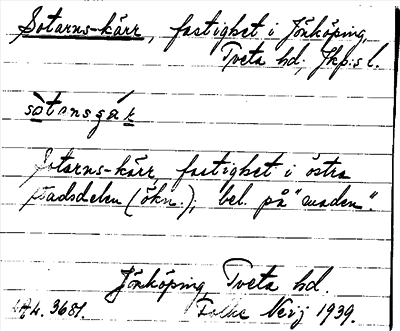 Sotarns-kärr, fastighet i Jönköping,
Tveta hd, Jkp:s l.
sòtansgák
Sotarns-kärr, fastighet i östra
stadsdelen (ökn.); bel. på "maden".
Jönköping Tveta hd.
3681. Folke 1939.